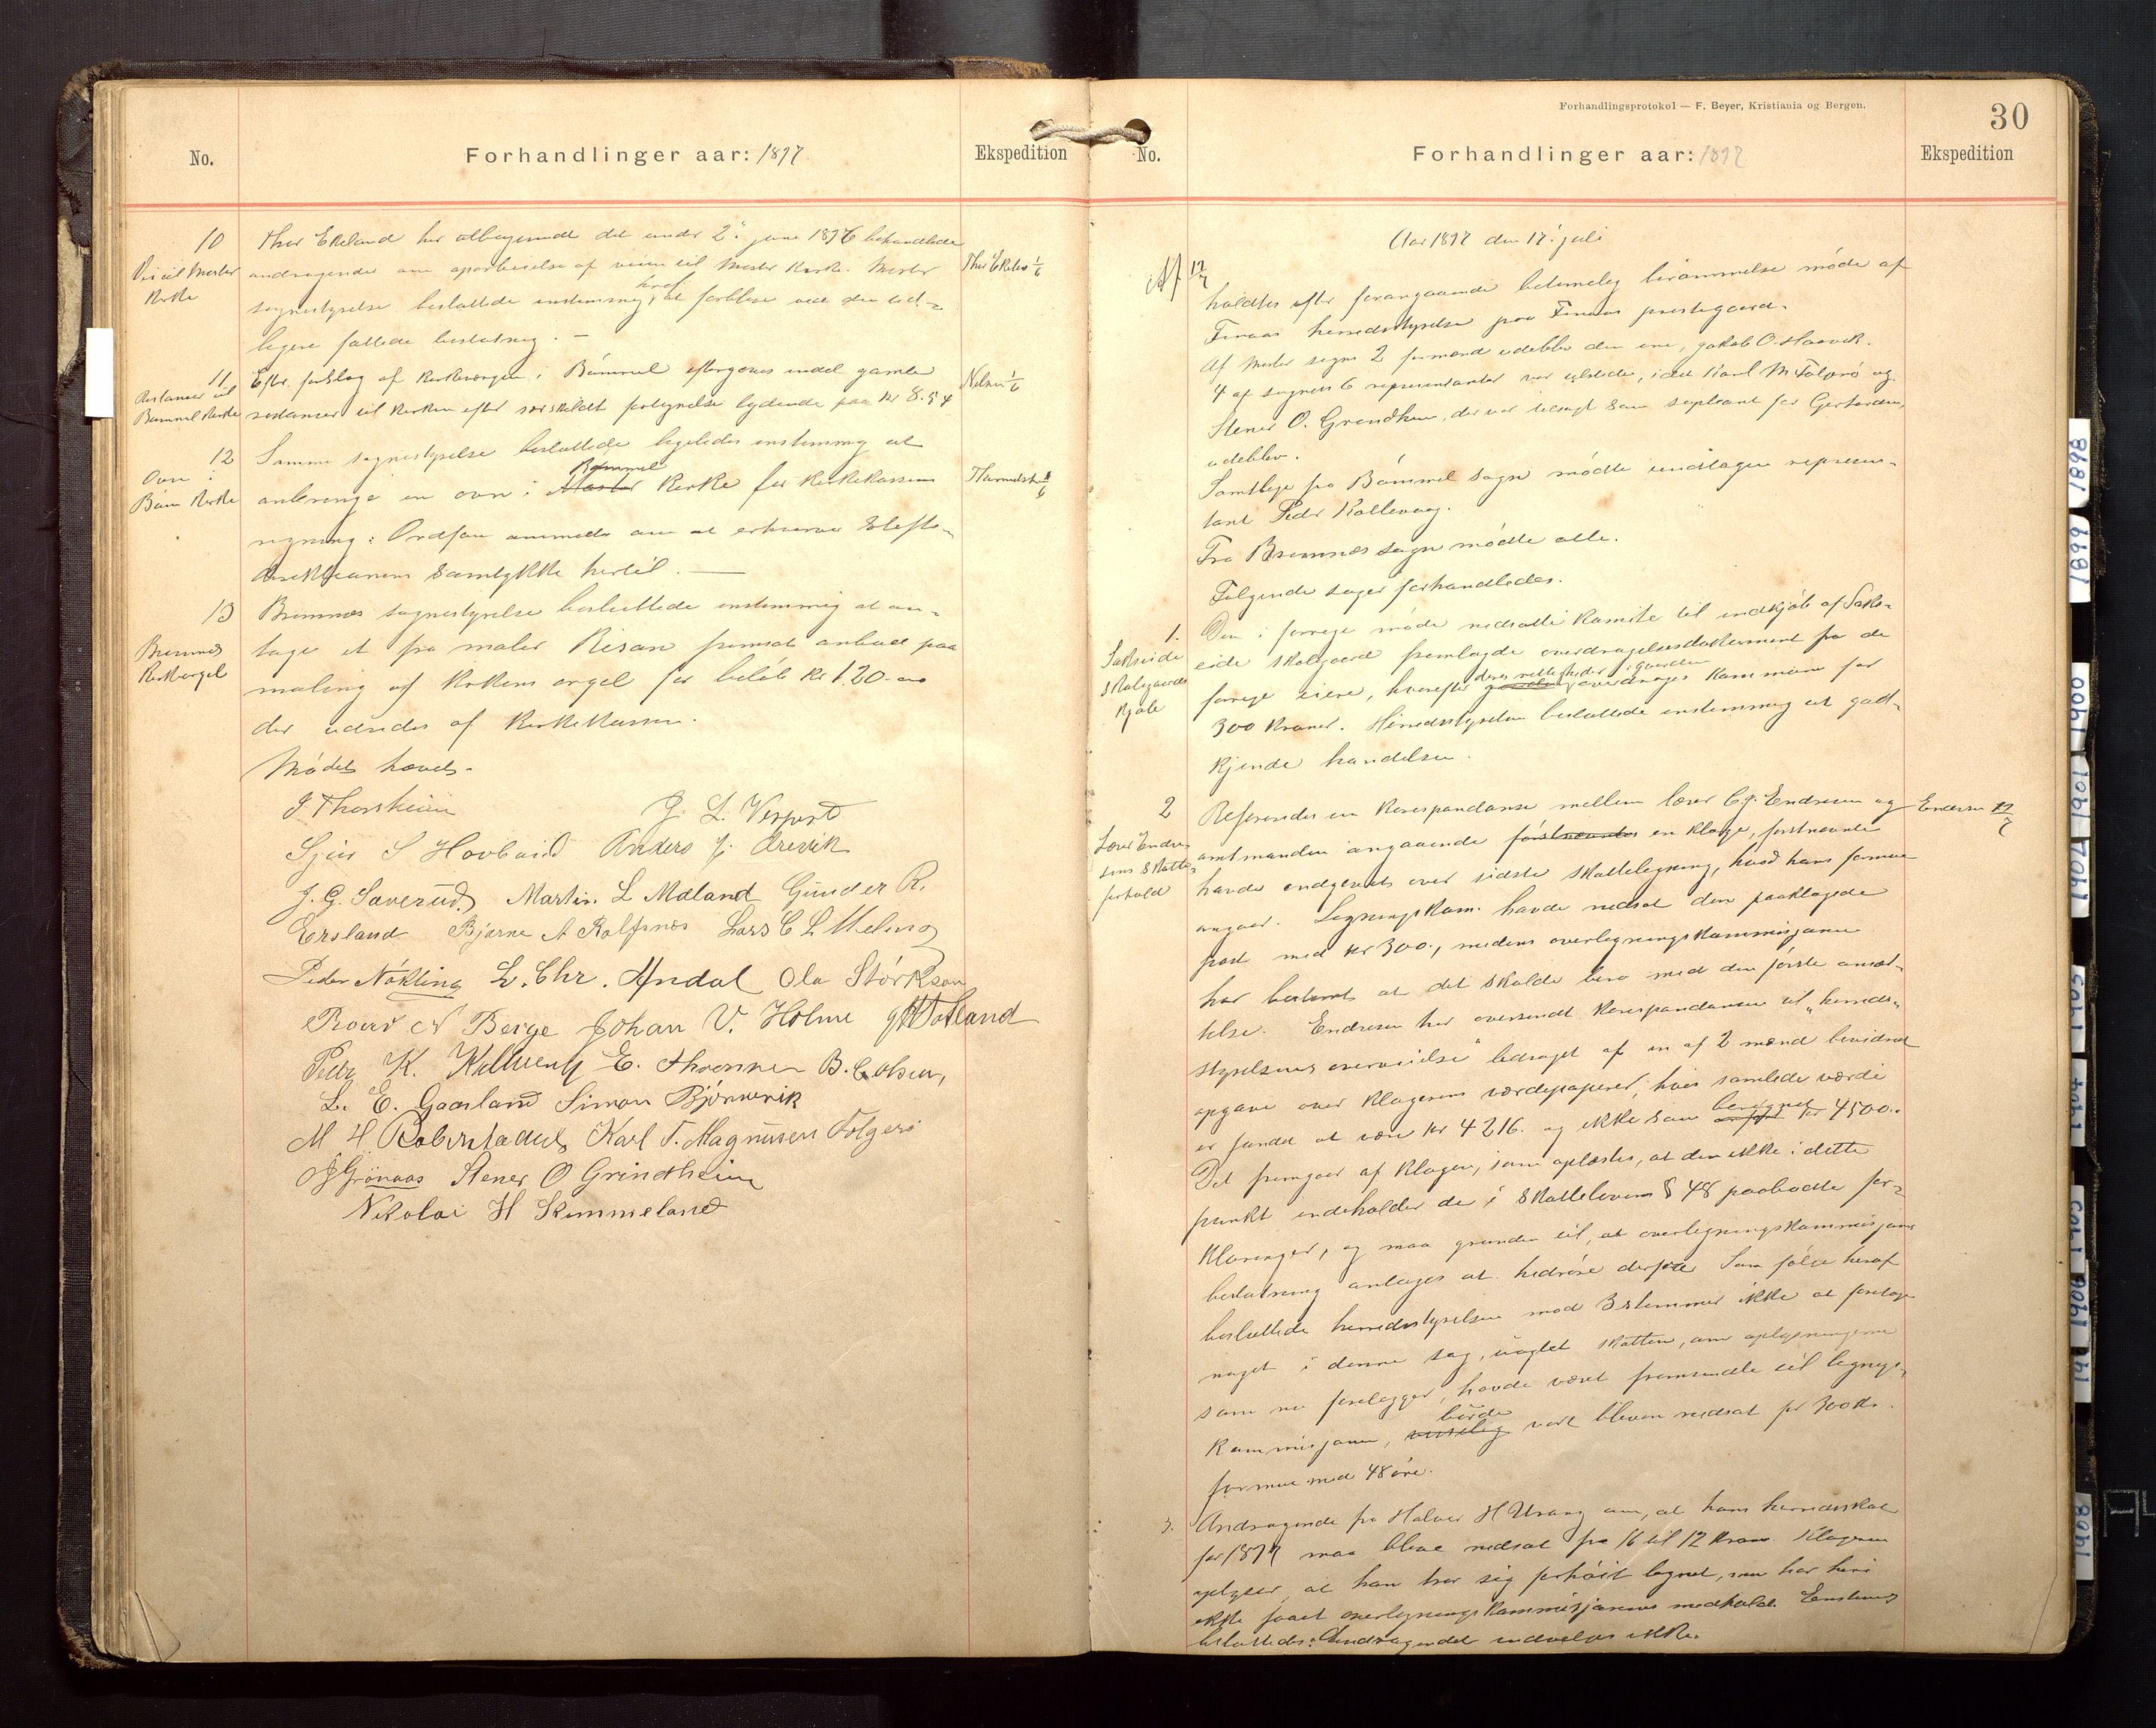 No.
Forhandlinger aar: 1897
Ekspedition
10
Vei til Moster
Kirke
Thor Ekeland har atbegjæredt det under 2. juni 1896 behandlede
andragende om oparbeidelse af veien til Moster Kirke. Moster
Thor Ekeland 1/6
sognestyrelse besluttede enstemmig heraf at forblive ved den tid-
ligere fattede beslutning. —
11
Restancer til
Bømmel Kirke
Efter forslag af Kirkeværgen i Bømmel eftergives endel gamle
restancer til Kirken efter særskildt fortegnelse lydende paa kr 8.54
Nilsen 1/6
12
Ovn i
Bøm Kirke
Samme sognestyrelse besluttede ligeledes enstemmig at
anbringe en ovn i Moster Bømmel Kirke for Kirkekassens
regning: Ordføren anmodes om at erhverve Stifts-
direktionens Samtykke hertil. —
13
Bremnes
Kirkeorgel
Bremnes sognestyrelse besluttede enstemmig at an-
tage et fra maler Risan fremsat anbud paa
maling af Kirkens orgel for beløb kr 120.-
der udredes af Kirkekassen.
Mødet hævet.
J Thorsheim J. L. Vespest
Sjur S Hovland Anders J. Årevik
J. G. Saverud. Martin. L Mæland Gunder R.
Ersland Bjarne A Rolfsnes Lars C L Meling
Peder Nökling L. Chr. Andal Ola Störkson
Baard N Berge Johan V. Holme Totland
Peder K. Kallevaag E. Thoresen B. C. Olsen,
L. E. Gaasland Simon Björnevik
M H Roberstadnes Karl T. Magnusen Folgerö
J Grönaas Stener O Grindheim
Nikolai H Skimmeland
Forhandlingsprotokol — F. Beyer, Kristiania og Bergen.
30
No.
Forhandlinger aar: 1897
Ekspedition
Aar 1897 den 17. juli
17/7
holdtes efter forangaaende betimelig berammelse møde af
Finaas herredsstyrelse paa Finaas prestegaard.
Af Moster sogns 2 formænd udeblev den ene, Jakob O. Haavik.
4 af sognets 6 repræsentanter var tilstede, idet Karl M Folgerö og
Stener O. Grindheim, der var tilsagt som supleant for Gerhardsen,
udeblev.
Samtlige fra Bömmel Sogn mødte undtagen repræsen-
tant Peder Kallevaag.
Fra Bremnes Sogn mødte alle.
Følgende sager forhandledes.
1.
Sakseide
Skolegaards
Kjøb
Den i forrige møde nedsatte Komite til indkjøb af Saks-
eide Skolegaard fremlagde overdragelsesdokument fra de
forrige eiere, hvorefter gaarden deres rettigheder i gaarden overdrages Kommunen for
300 Kroner. Herredsstyrelsen besluttede enstemmig at god-
kjende handelen.
2
Lærer Endre-
sens Skatte-
forhold
Refereredes en Korespondanse mellem lærer C. J. Endresen og
Endresen 17/7
amtmanden angaaende førstnævntes en Klage, førstnævnte
havde indgivet over sidste Skattelegning, hvad hans formue
angaar. Ligningskom. havde nedsat den paaklagede
post med kr 300., medens overligningskommissjonen
har bestemt at det skulde bero med den første ansæt-
telse. Endresen har oversendt Korespondansen til "herreds-
styrelsens overveielse" ledsaget af en af 2 mænd bevidnet
opgave over Klagerens værdipapirer, hvis samlede værdi
er fundet at være kr 4216. og ikke som beregnet kr 4500.
Det fremgaar af Klagen, som oplæstes, at den ikke i dette
punkt indeholder de i Skattelovens § 48 paabudte for-
klaringer, og maa grunden til, at overligningskommissjonens
beslutning antages at hidrøre derfra. Som følge heraf
besluttede herredsstyrelsen mod 3 stemmer ikke at foretage
noget i denne Sag, uagtet skatten, om oplysningerne
som nu foreligger, havde været fremsendte til lignings-
Kommissjonen, virkelig burde vært bleven nedsat for 300 kr.
formue med 48 øre.
3.
Andragende fra Halvor H Urang om, at hans herredsskat
for 1897 maa blive nedsat fra 16 til 12 Kroner. Klageren
oplyser, at han tror sig forhøit lignet, men har heri
ikke faaet overligningskommissjonens medhold. Enstemmig
besluttedes: Andragendet indvilges ikke.
1898
1899
1900
1901
1902
1903
1904
1905
1906
1908